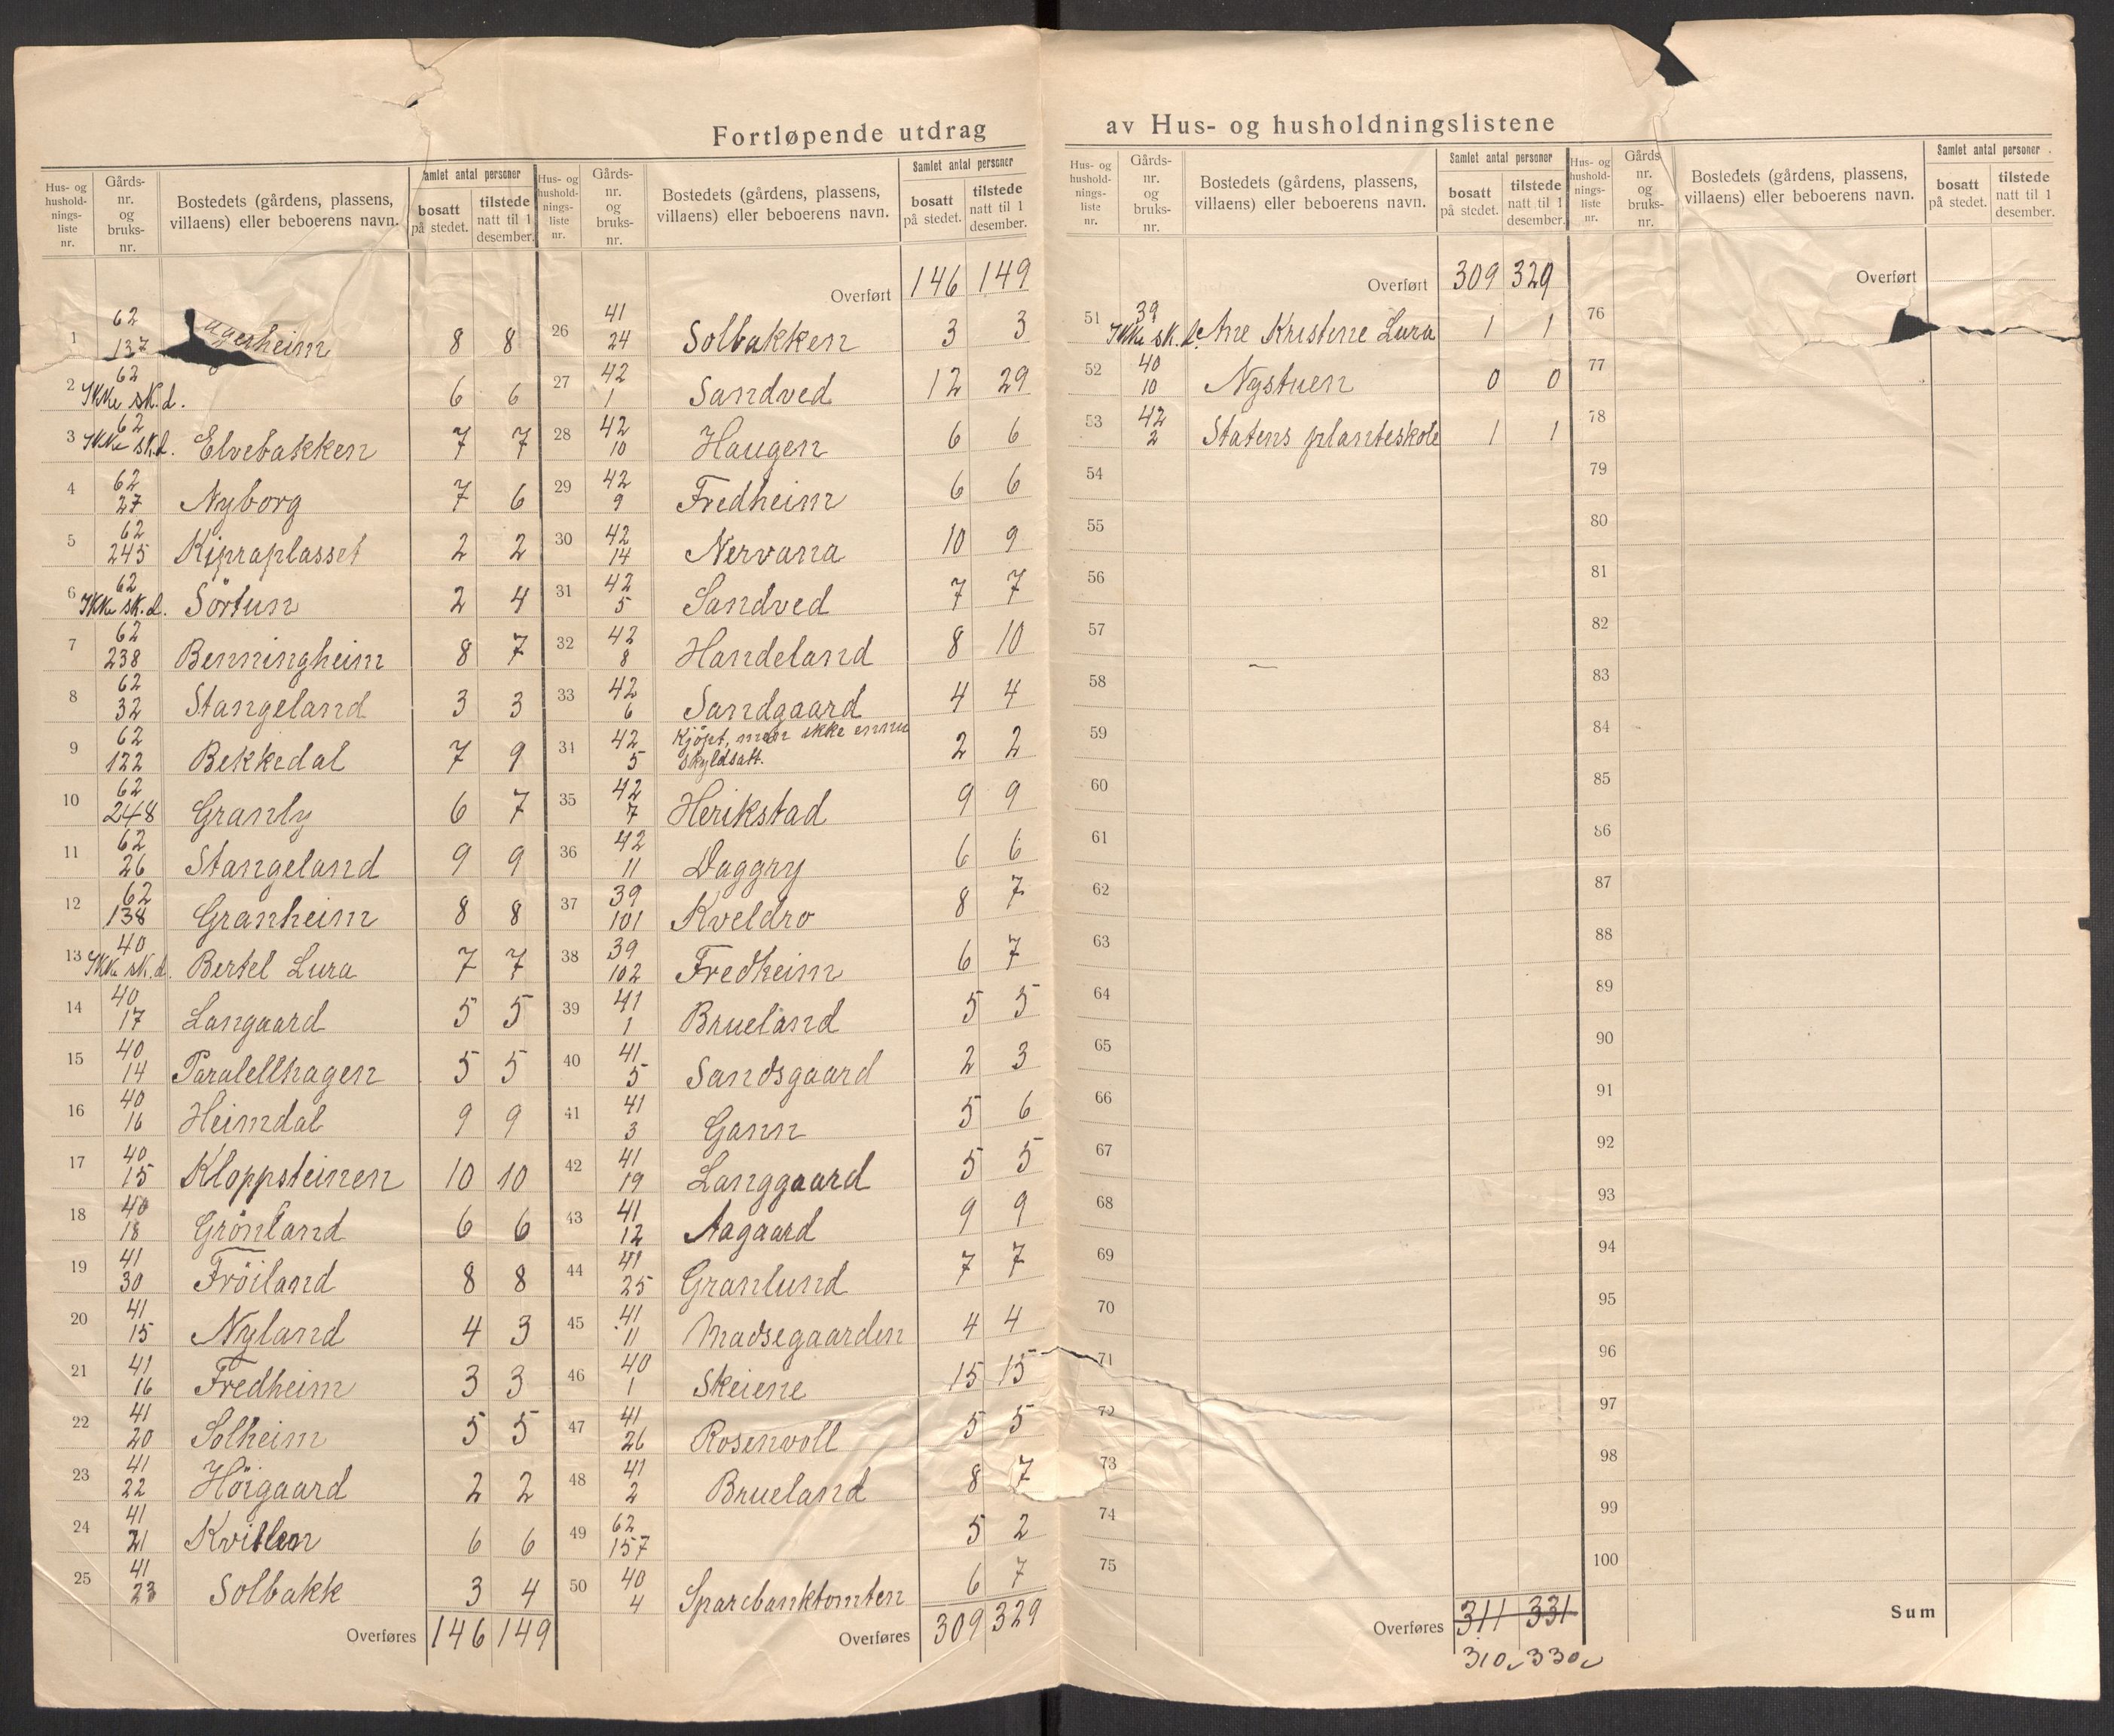 Fortløpende utdrag av Hus- og husholdningslistene
Hus- og hushold-nings-liste nr. | Gårds-nr. og bruks-nr. | Bostedets (gårdens, plassens, villaens) eller beboerens navn. | amlet antal personer | bosatt på stedet. | tilstede natt til 1 desember.
1 | 62 137 | agerheim | 8 | 8
2 | 62 Ikke sk.d. | | 6 | 6
3 | 62 Ikke sk.d. | Elvebakken | 7 | 7
4 | 62 27 | Nyborg | 7 | 6
5 | 62 245 | Kipraplasset | 2 | 2
6 | 62 Ikke sk.d. | Sörtun | 2 | 4
7 | 62 238 | Benningheim | 8 | 7
8 | 62 32 | Stangeland | 3 | 3
9 | 62 122 | Bekkedal | 7 | 9
10 | 62 248 | Granly | 6 | 7
11 | 62 26 | Stangeland | 9 | 9
12 | 62 138 | Granheim | 8 | 8
13 | 40 Ikke sk.d. | Bertel Lura | 7 | 7
14 | 40 17 | Langaard | 5 | 5
15 | 40 14 | Paralellhagen | 5 | 5
16 | 40 16 | Heimdal | 9 | 9
17 | 40 15 | Kloppsteinen | 10 | 10
18 | 40 18 | Grönland | 6 | 6
19 | 41 30 | Fröiland | 8 | 8
20 | 41 15 | Nyland | 4 | 3
21 | 41 16 | Fredheim | 3 | 3
22 | 41 20 | Solheim | 5 | 5
23 | 41 22 | Höigaard | 2 | 2
24 | 41 21 | | 6 | 6
25 | 41 23 | Solbakk | 3 | 4
Overføres | 146 | 149
Hus- og hushold-nings-liste nr. | Gårds-nr. og bruks-nr. | Bostedets (gårdens, plassens, villaens) eller beboerens navn. | Samlet antal personer | bosatt på stedet. | tilstede natt til 1 desember.
Overført | 146 | 149
26 | 41 24 | Solbakken | 3 | 3
27 | 42 1 | Sandved | 12 | 29
28 | 42 10 | Haugen | 6 | 6
29 | 42 9 | Fredheim | 6 | 6
30 | 42 14 | Nervana | 10 | 9
31 | 42 5 | Sandved | 7 | 7
32 | 42 8 | Handeland | 8 | 10
33 | 42 6 | Sandgaard | 4 | 4
34 | 42 5 | Kjöpt, men ikke ennu skyldsatt. | 2 | 2
35 | 42 7 | Herikstad | 9 | 9
36 | 42 11 | Daggry | 6 | 6
37 | 39 101 | Kveldro | 8 | 7
38 | 39 102 | Fredheim | 6 | 7
39 | 41 1 | Brueland | 5 | 5
40 | 41 5 | Sandsgaard | 2 | 3
41 | 41 3 | Gann | 5 | 6
42 | 41 19 | Langgaard | 5 | 5
43 | 41 12 | Aagaard | 9 | 9
44 | 41 25 | Granlund | 7 | 7
45 | 41 11 | Madsegaarden | 4 | 4
46 | 40 1 | Skeiene | 15 | 15
47 | 41 26 | Rosenvoll | 5 | 5
48 | 41 2 | Brueland | 8 | 7
49 | 62 157 | | 5 | 2
50 | 40 4 | Sparebanktomten | 6 | 7
Overføres | 309 | 329
Hus- og hushold-nings-liste nr. | Gårds-nr. og bruks-nr. | Bostedets (gårdens, plassens, villaens) eller beboerens navn. | Samlet antal personer | bosatt på stedet. | tilstede natt til 1 desember.
Overført | 309 | 329
51 | 39 Ikke sk.d. | Ane Kristine Lura | 1 | 1
52 | 40 10 | Nystuen | 0 | 0
53 | 42 2 | Statens planteskole | 1 | 1
54
55
56
57
58
59
60
61
62
63
64
65
66
67
68
69
70
71
72
73
74
75
Overføres | 311 | 331
310 330
Hus- og hushold-nings-liste nr. | Gårds nr. og bruks-nr. | Bostedets (gårdens, plassens, villaens) eller beboerens navn. | Samlet antal personer | bosatt på stedet. | tilstede natt til 1 desember.
Overført
76
77
78
79
80
81
82
83
84
85
86
87
88
89
90
91
92
93
94
95
96
97
98
99
100
Sum